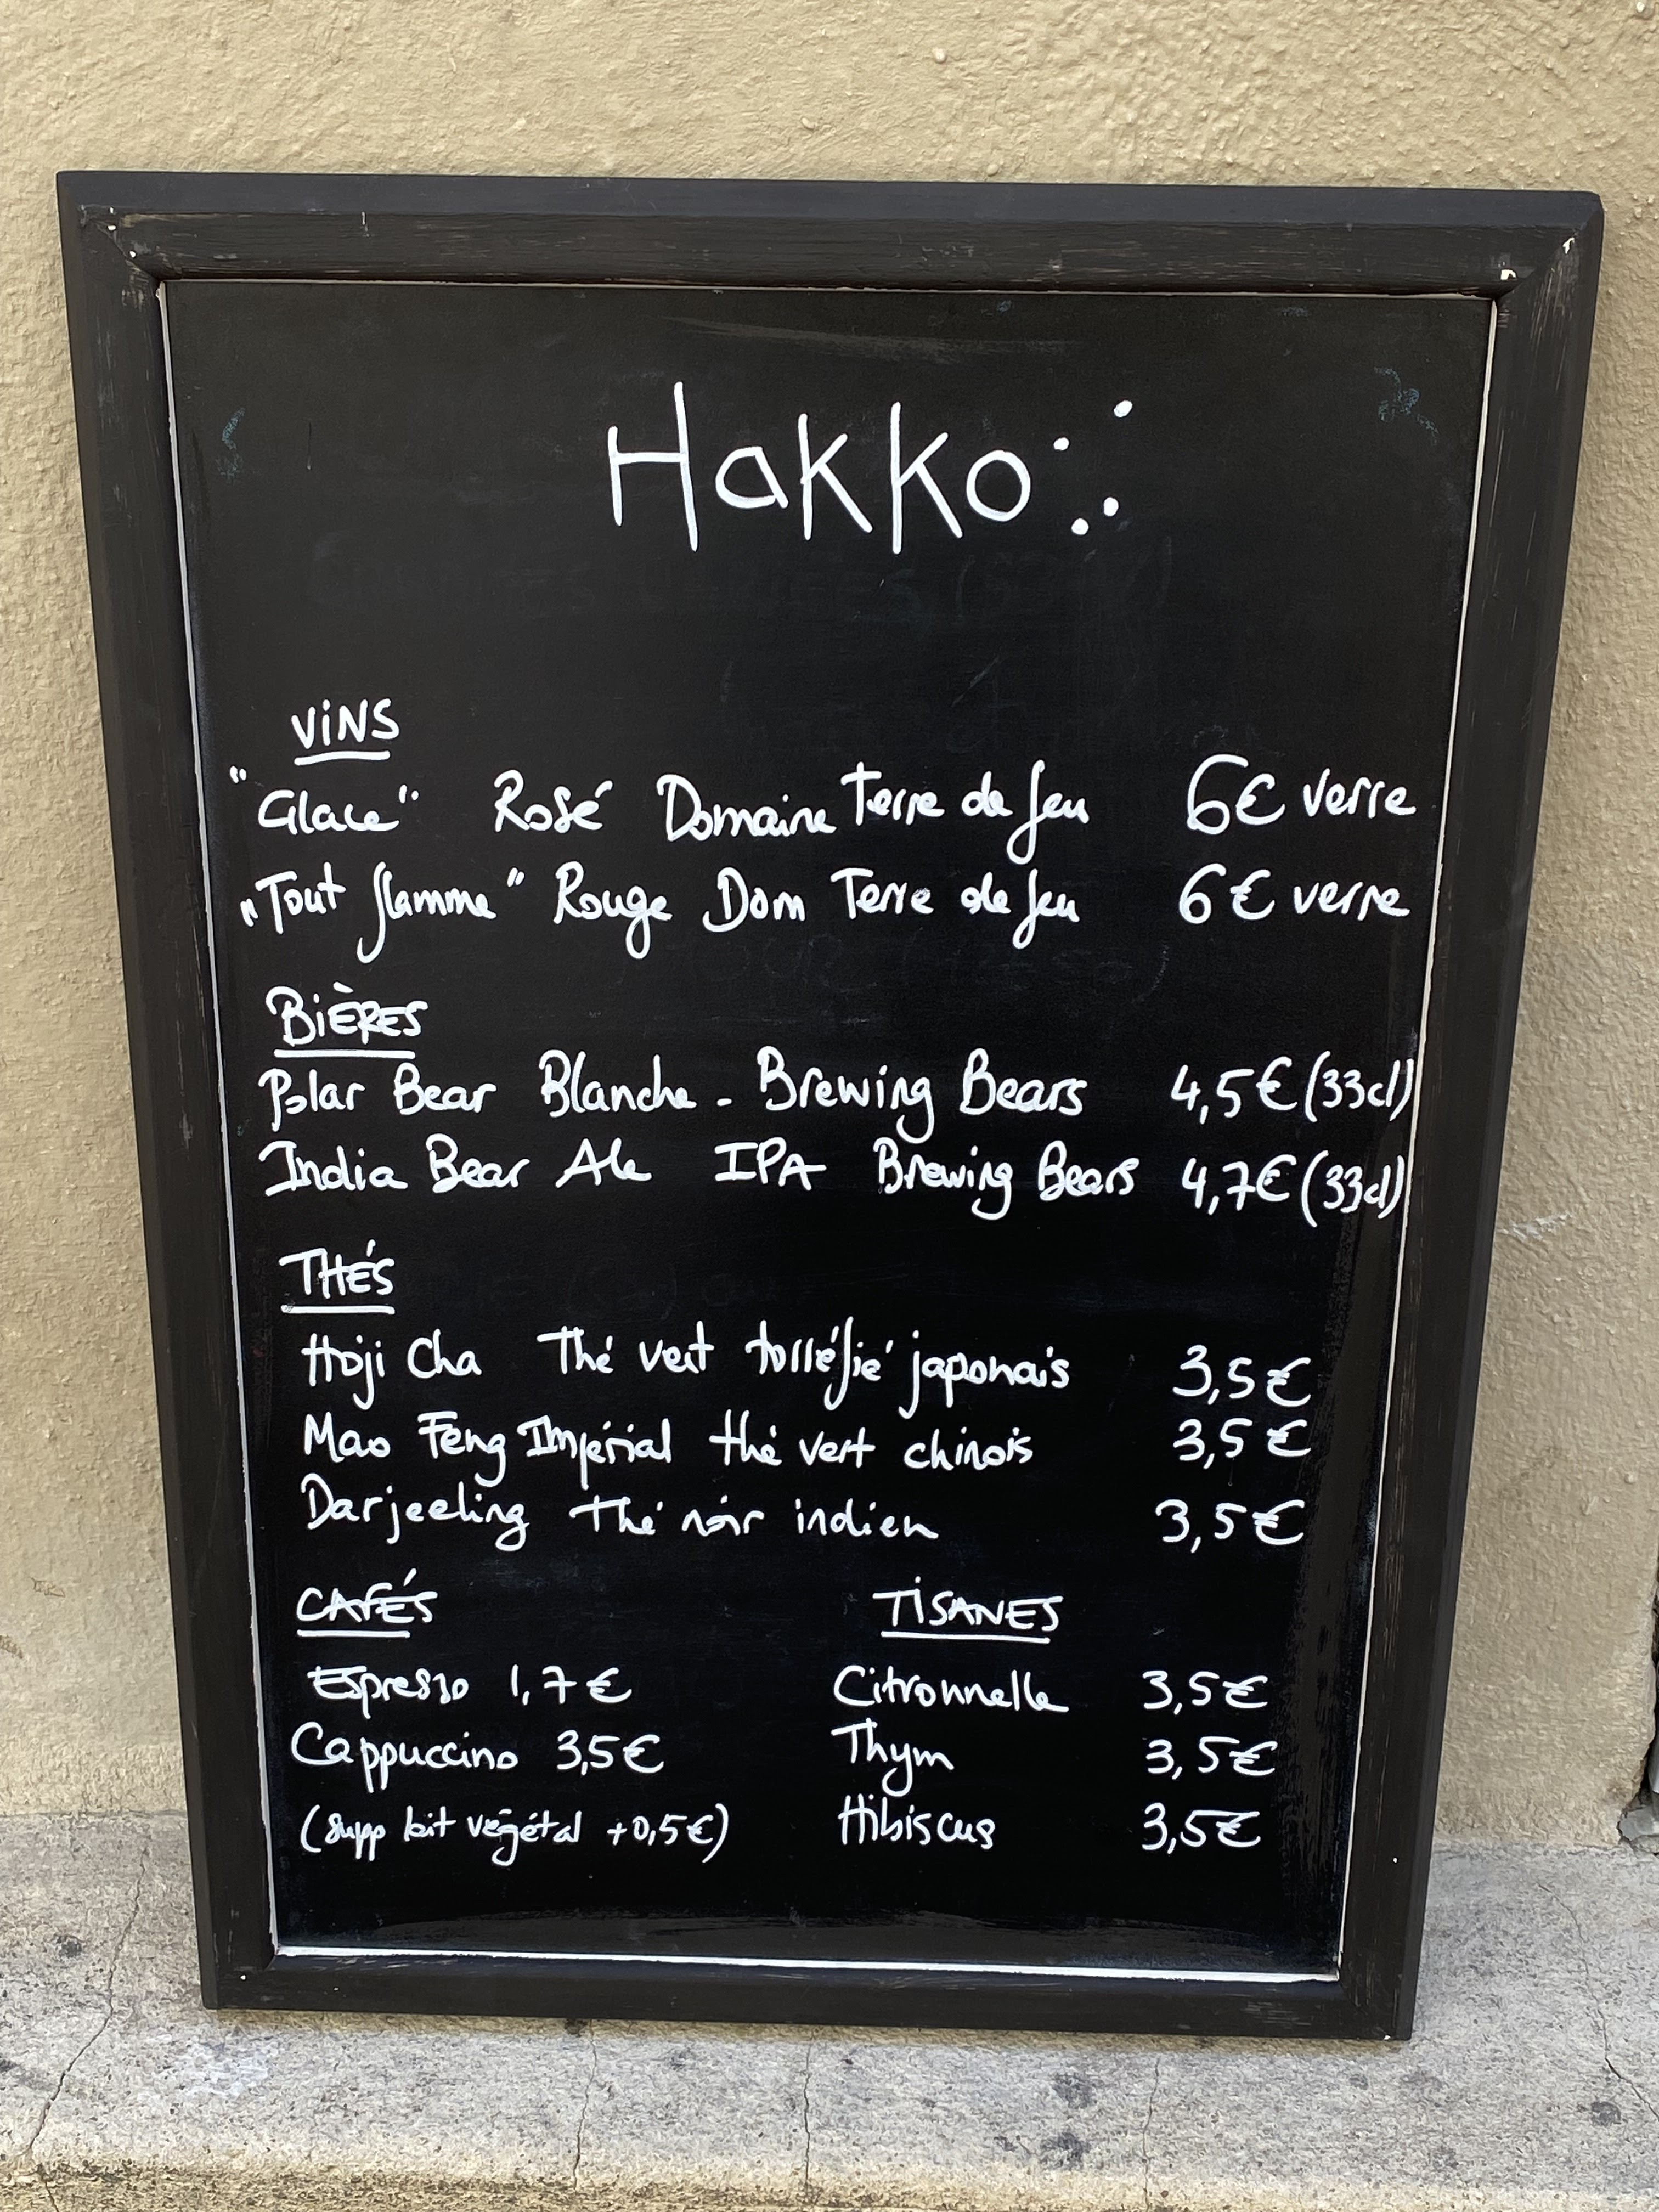 Hakko
ViNS
"Glace" Rosé Domaine Terre de feu 6€ verre
"Tout flamme" Rouge Dom Terre de feu 6€ verre
BiÈRES
Polar Bear Blanche - Brewing Bears 4,5€ (33cl)
India Bear Ale IPA Brewing Bears 4,7€ (33cl)
THÉS
Hoji Cha Thé vert torréfié japonais 3,5€
Mao Feng Impérial thé vert chinois 3,5€
Darjeeling thé noir indien 3,5€
CAFÉS
Espresso 1,7€
Cappuccino 3,5€
(supp lait végétal +0,5€)
TiSANES
Citronnelle 3,5€
Thym 3,5€
Hibiscus 3,5€